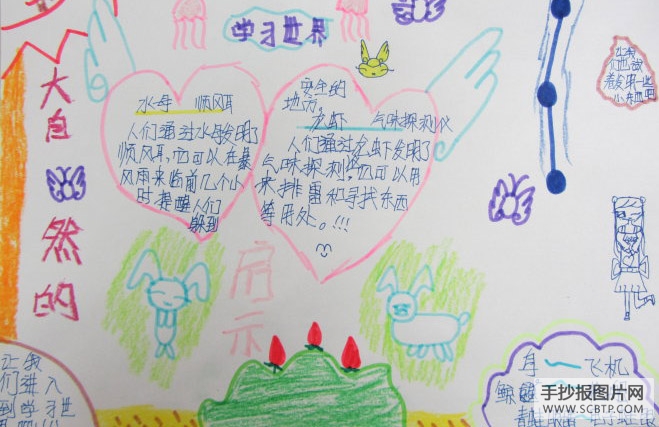 学习世界
大自然的
启示
水母 顺风耳
人们通过水母发明了
顺风耳,它可以在暴
风雨来临前几个小
时提醒人们
躲到
安全的
地方。
龙虾 气味探测仪
人们通过龙虾发明了
气味探测仪,它可以用
来排雷和寻找东西
等用处。!!!
让我
们也试
着发明一些
小东西
让我
们进入
到学习世
飞机
手抄报图片网
WWW.SCBTP.COM